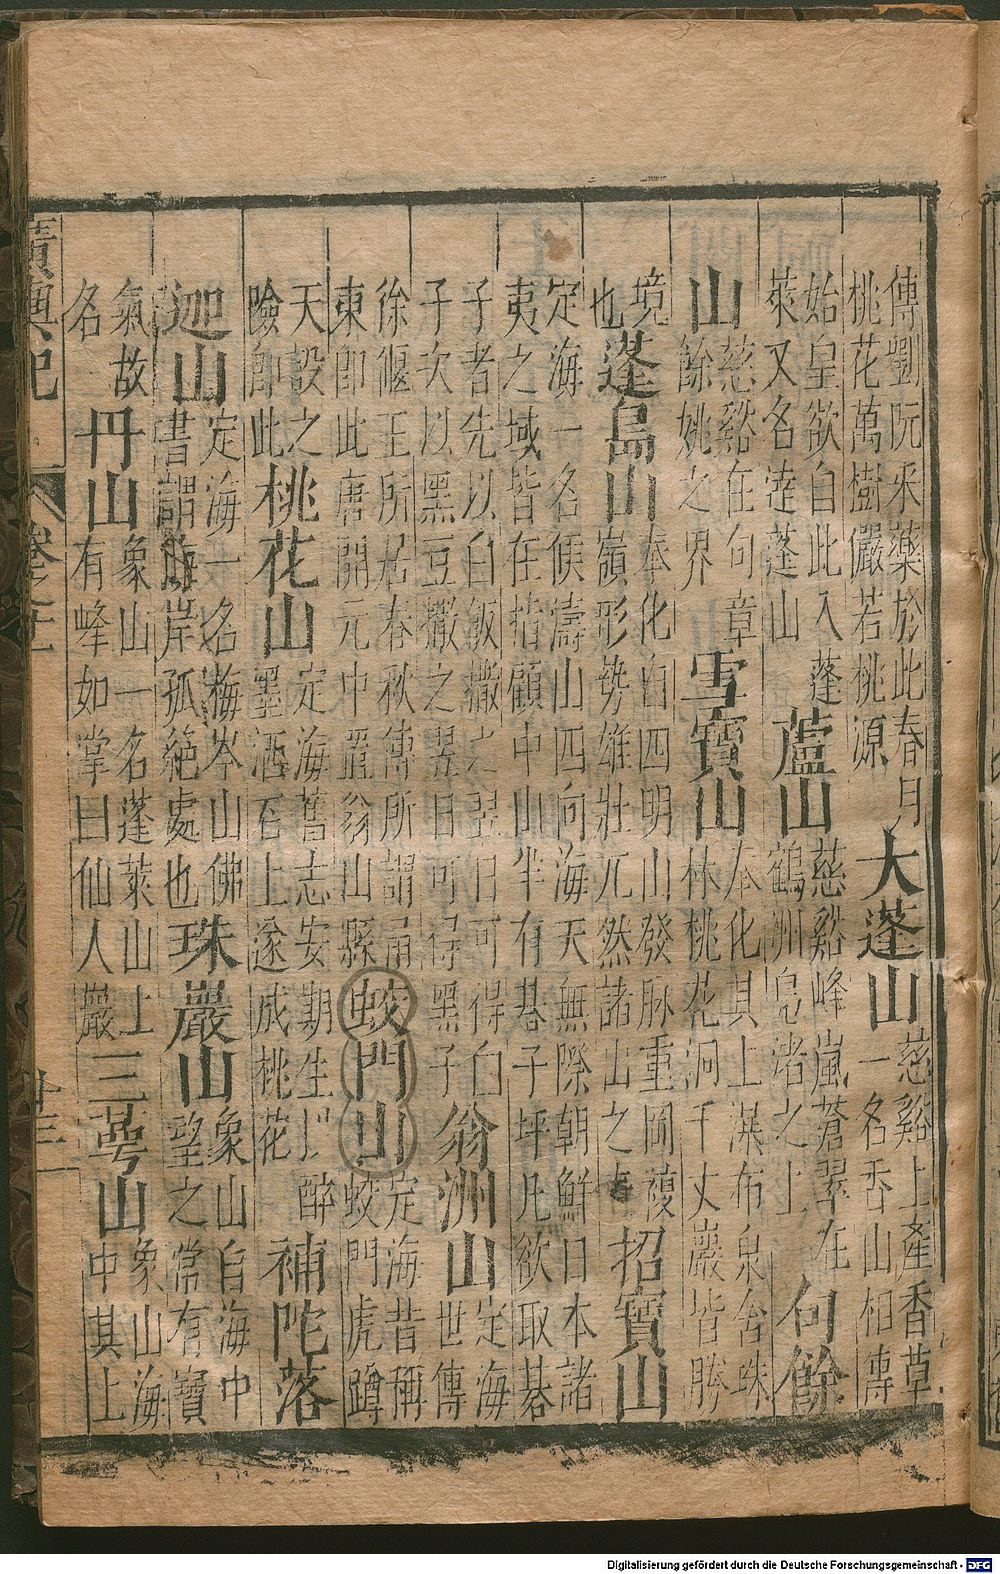 傳劉阮采藥於此春月
桃花萬樹儼若桃源
大蓬山
慈谿上產香草
一名香山相傳
始皇欲自此入蓬
萊又名達蓬山
蘆山
慈谿峰嵐蒼翠在
鶴洲鳧渚之上
句餘
山
慈谿在句章
餘姚之界
雪寶山
奉化其上瀑布泉含珠
林桃花洞千丈巖皆勝
境
也
蓬島山
奉化自四明山發脉重岡複
嶺形勢雄壯兀然諸山之
招寶山
定海一名候濤山四向海天無際朝鮮日本諸
夷之域皆在指顧中山半有棊子坪凡欲取棊
子者先以白飯撒之翌日可得白
子次以黑豆撒之翌日可得黑子
翁洲山
定海
世傳
徐偃王所居春秋傳所謂甬
東即此唐開元中置翁山縣
蛟門山
定海昔稱
蛟門虎蹲
天設之
險即此
桃花山
定海舊志安期生以醉
墨洒石上遂成桃花
補陀落
迦山
定海一名梅岑山佛
書謂海岸孤絕處也
珠巖山
象山自海中
望之常有寶
氣故
名
丹山
象山一名蓬萊山上
有峰如掌曰仙人巖
三萼山
象山海
中其上
廣輿記
卷之十一
廿三
Digitalisierung gefördert durch die Deutsche Forschungsgemeinschaft - DFG